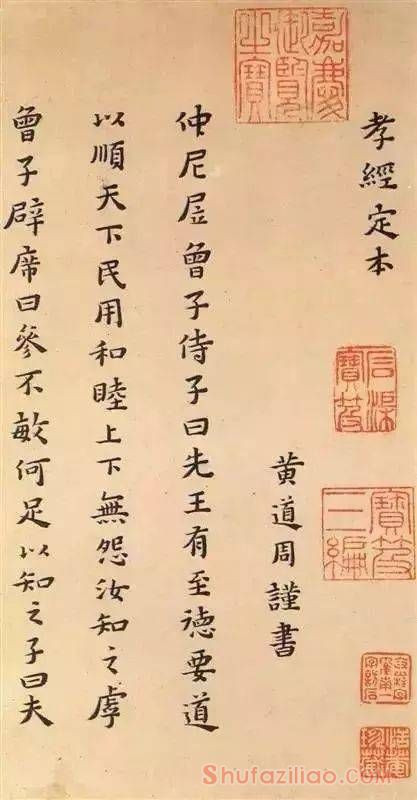 孝經定本
黄道周謹書
仲尼凥曾子侍子曰先王有至德要道
以順天下民用和睦上下無怨汝知之虖
曾子辟席曰參不敏何足以知之子曰夫
嘉慶御覽之寶
石渠寶笈
寶笈三編
Shufaziliao.com